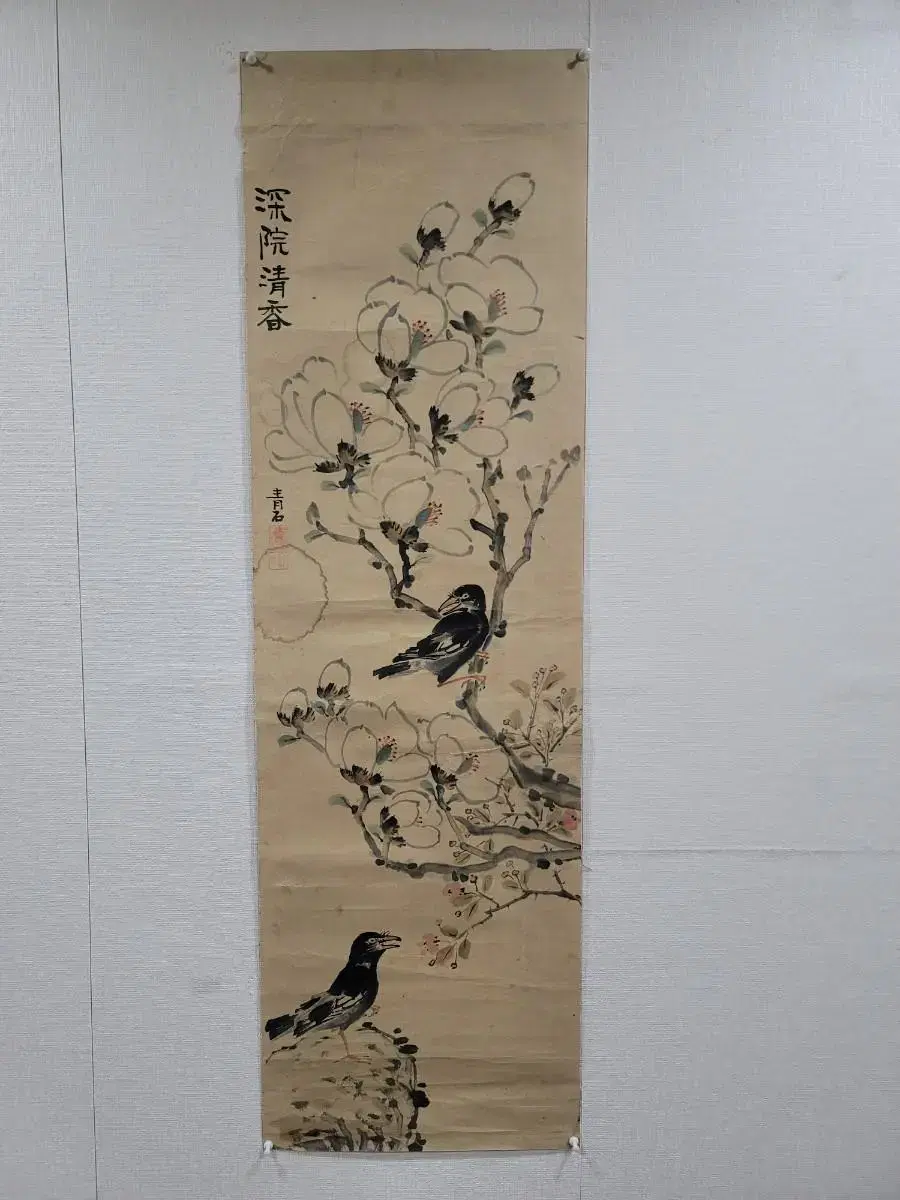 深院清香
青石